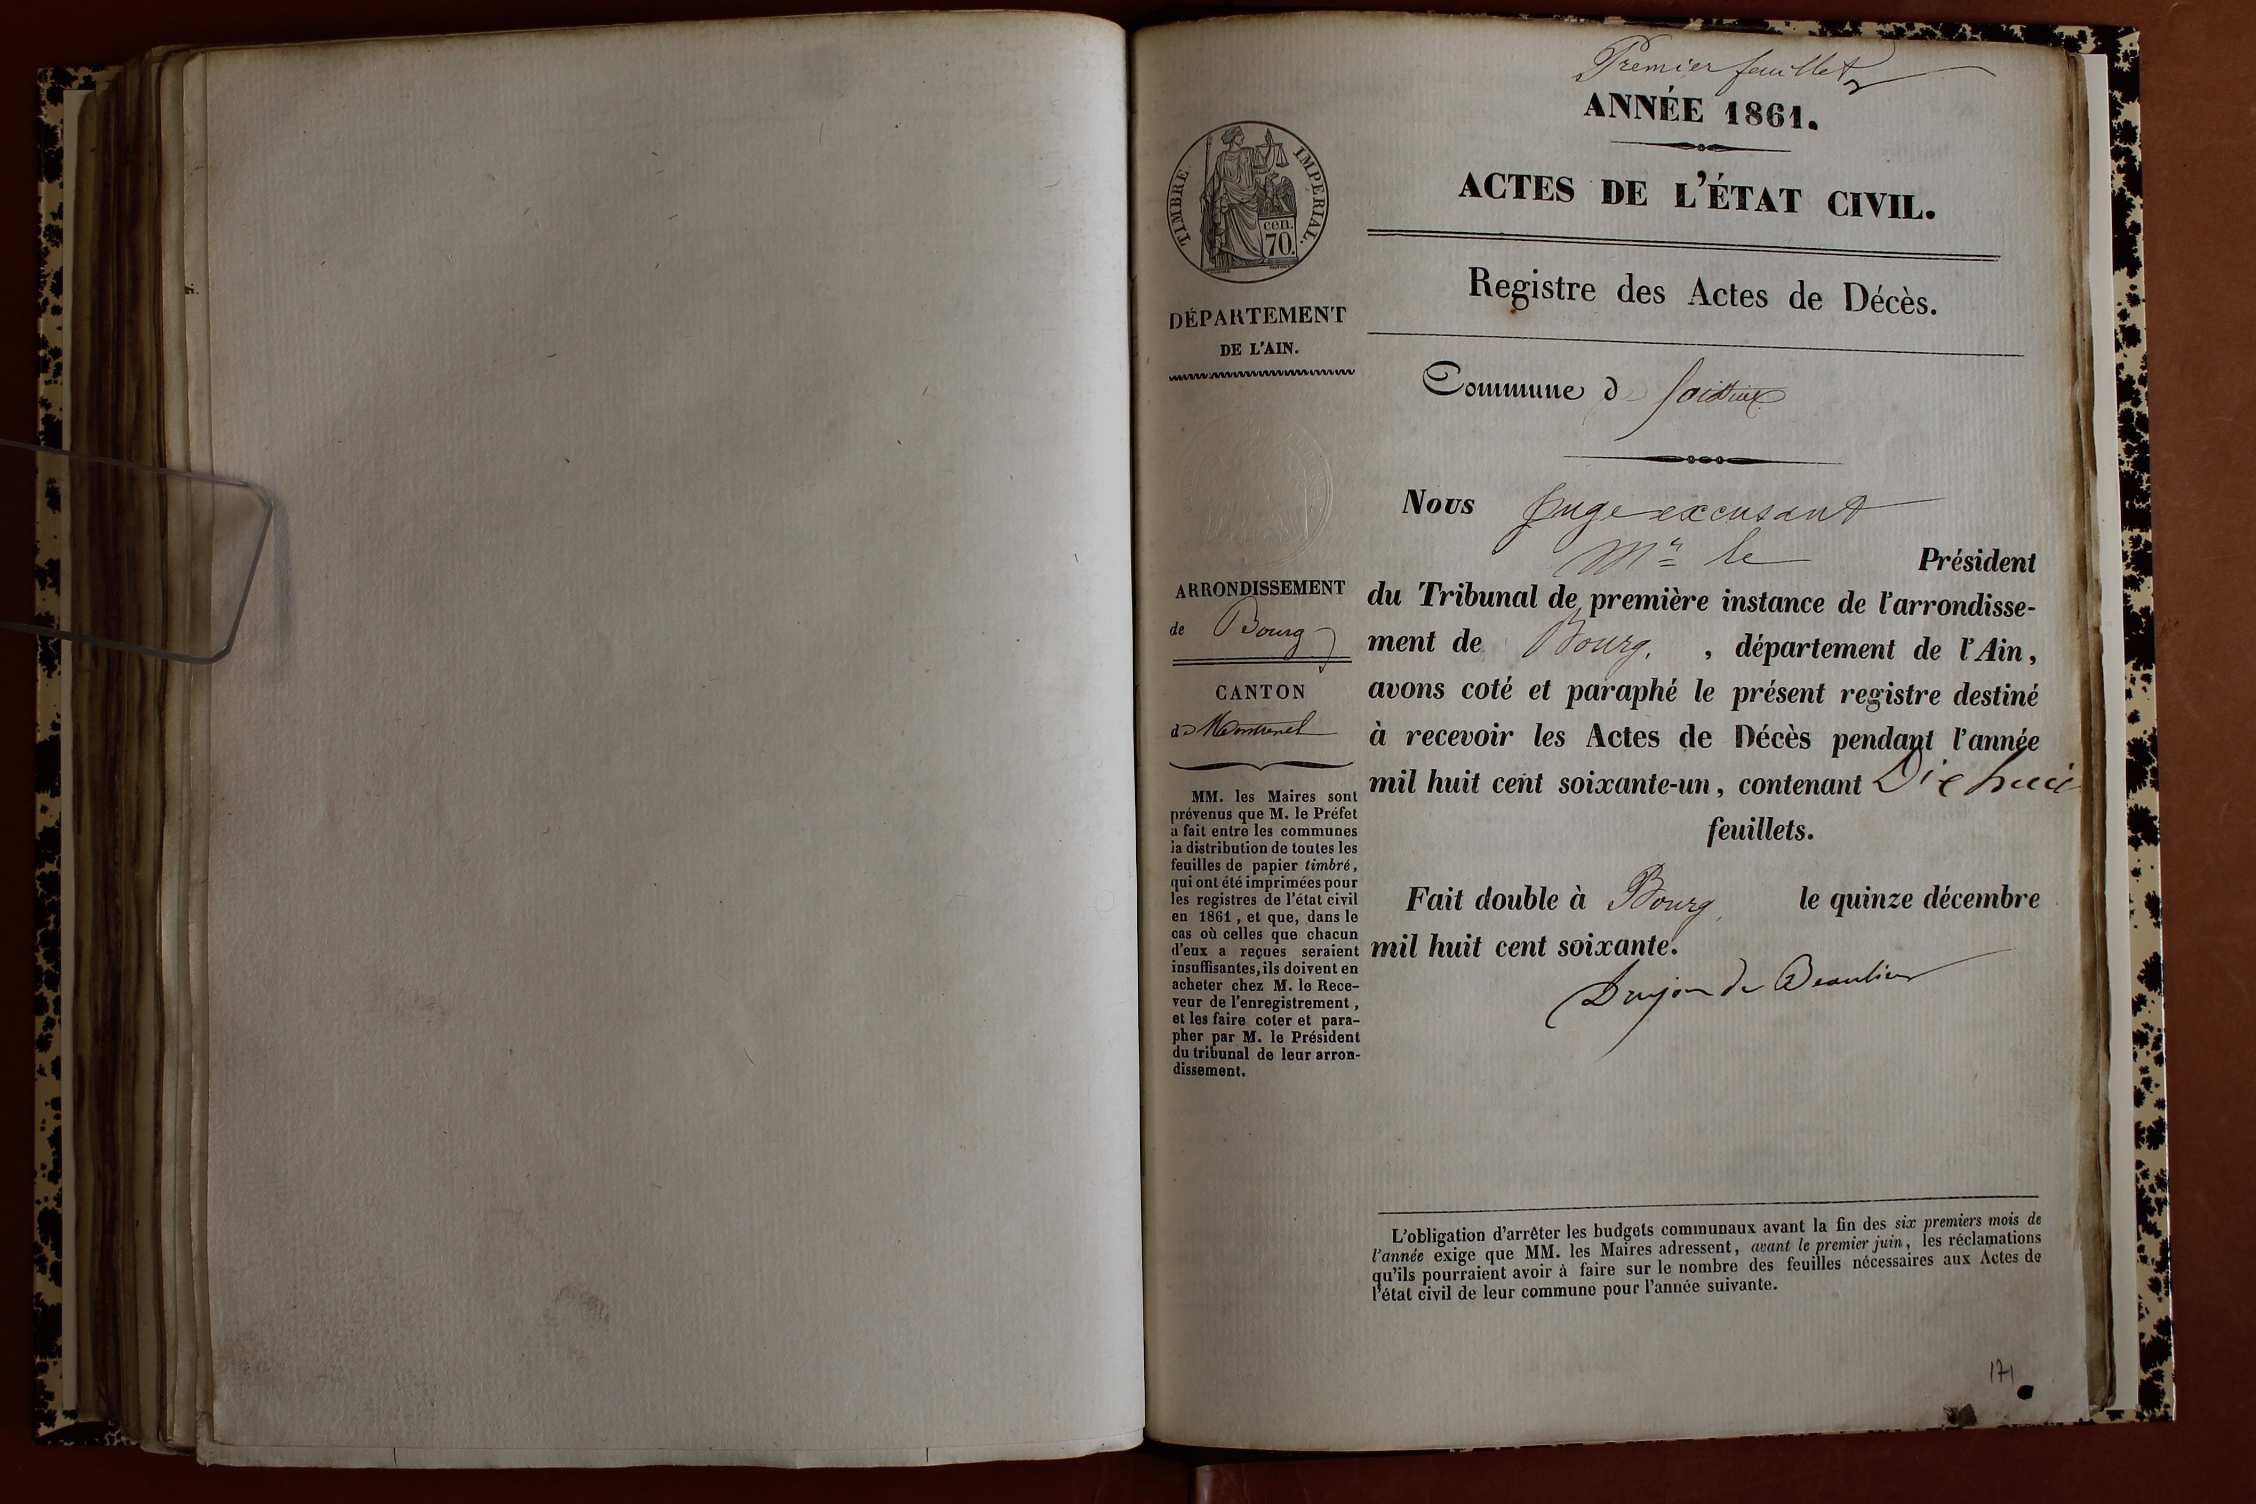 Premier feuillet
ANNÉE 1861.
ACTES DE L'ÉTAT CIVIL.
Registre des Actes de Décès.
Commune d
Nous Juge excusant
Mr le Président
du Tribunal de première instance de l'arrondisse-
ment de Bourg. , département de l'Ain,
avons coté et paraphé le présent registre destiné
à recevoir les Actes de Décès pendant l'année
mil huit cent soixante-un, contenant Dix huit
feuillets.
Fait double à Bourg, le quinze décembre
mil huit cent soixante.
Dujon de Beaulieu
L'obligation d'arrêter les budgets communaux avant la fin des six premiers mois de
l'année exige que MM. les Maires adressent, avant le premier juin, les réclamations
qu'ils pourraient avoir à faire sur le nombre des feuilles nécessaires aux Actes de
l'état civil de leur commune pour l'année suivante.
171
TIMBRE IMPERIAL.
cen.
70.
DÉPARTEMENT
DE L'AIN.
ARRONDISSEMENT
de Bourg
CANTON
de Montrevel
MM. les Maires sont
prévenus que M. le Préfet
a fait entre les communes
la distribution de toutes les
feuilles de papier timbré,
qui ont été imprimées pour
les registres de l'état civil
en 1861, et que, dans le
cas où celles que chacun
d'eux a reçues seraient
insuffisantes, ils doivent en
acheter chez M. le Rece-
veur de l'enregistrement,
et les faire coter et para-
pher par M. le Président
du tribunal de leur arron-
dissement.